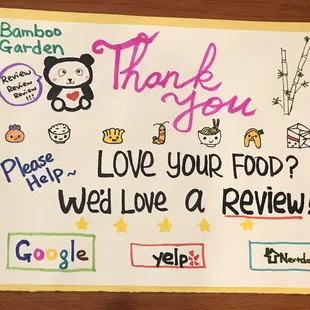 Bamboo
Garden
Review
Review
Review
!!!
Thank
you
Please
Help~
LOVE YOUR FOOD?
WE'D LOVE a REVIEW!
Google
yelp
Nextdo